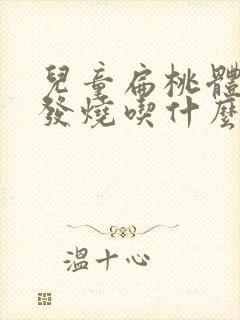 兒童扁桃體
發燒喫什麼
溫十心